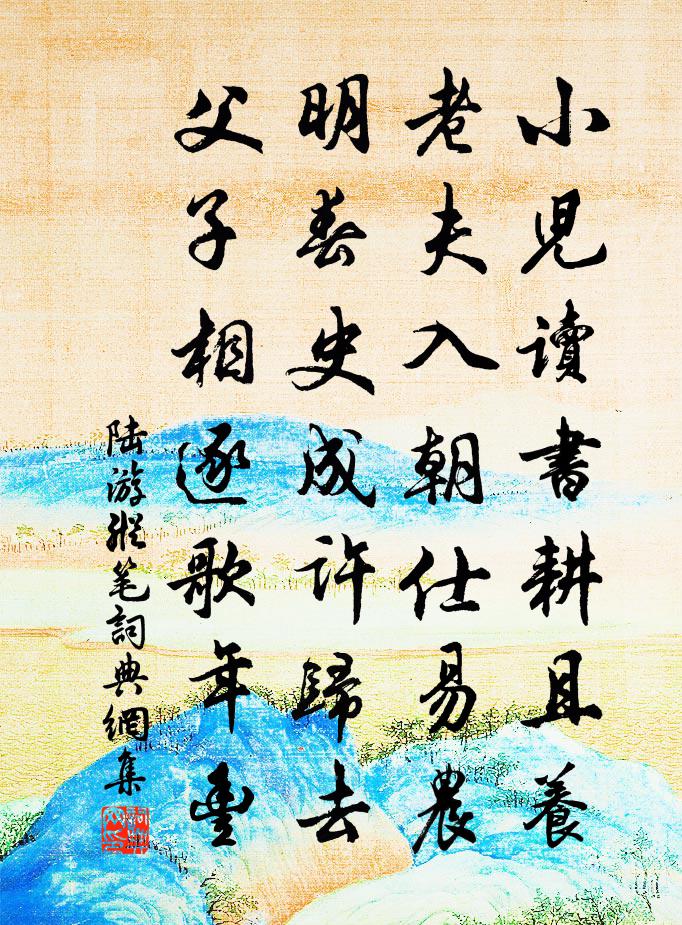 小兒讀書耕且養
老夫入朝仕易農
明春史成許歸去
父子相逐歌年豐
陆游縱笔詞典網集